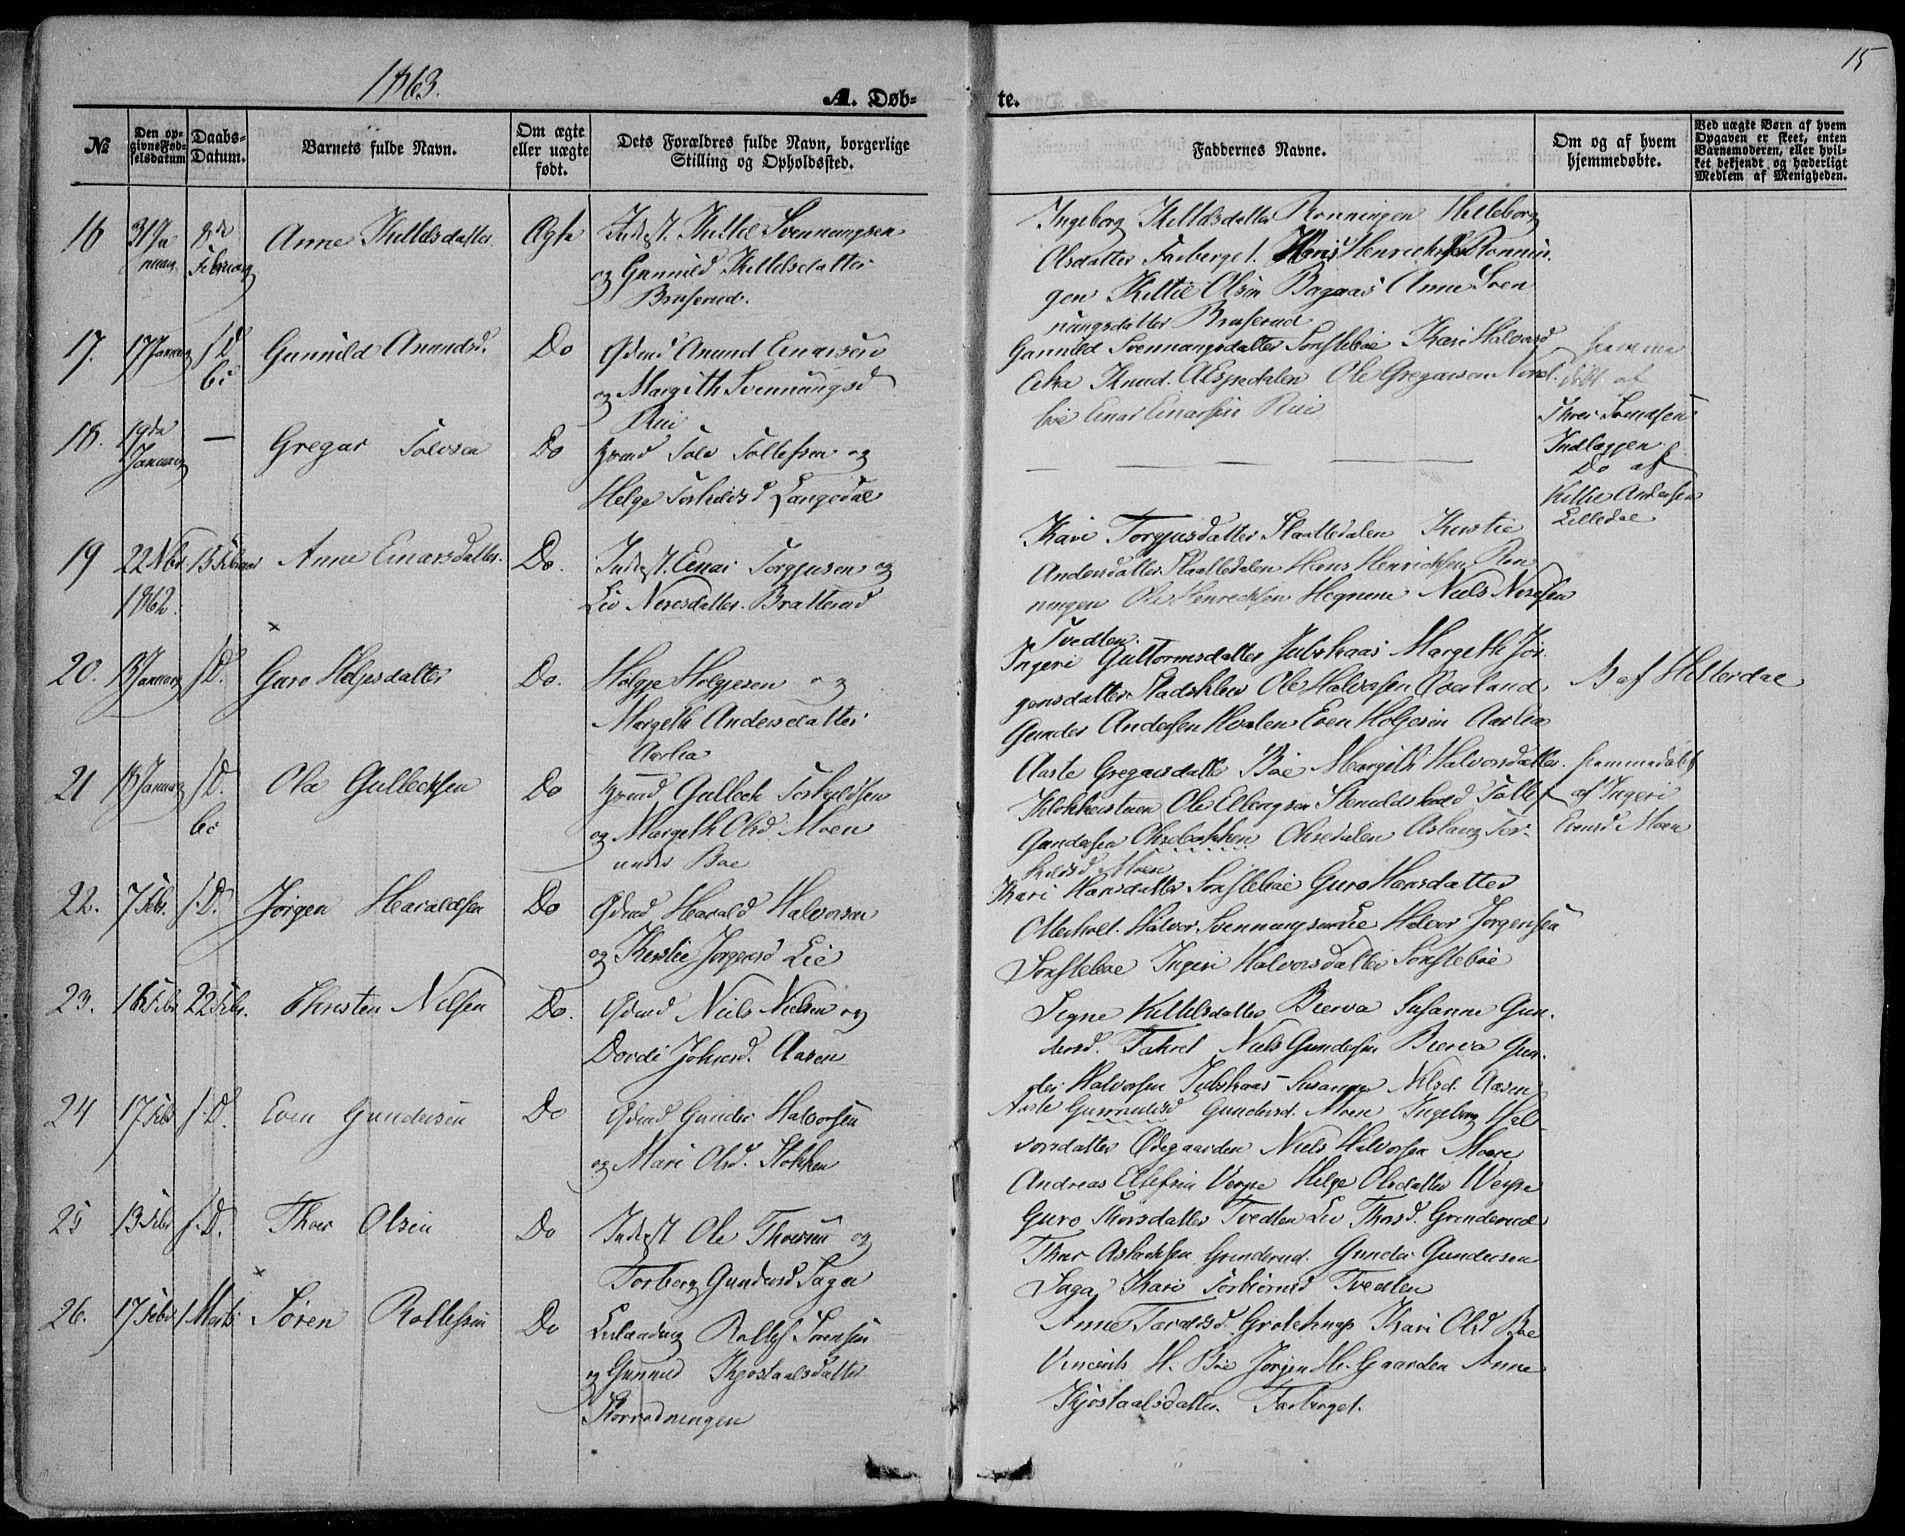 15
1863.
A. Døb-
te.
№
Den op-
givne Fød-
selsdatum
Daabs-
Datum.
Barnets fulde Navn.
Om ægte
eller uægte
født.
Dets Forældres fulde Navn, borgerlige
Stilling og Opholdssted.
Faddernes Navne.
Om og af hvem
hjemmedøbte.
Ved uægte Børn af hvem
Opgaven er skeet, enten
Barnemoderen, eller hvil-
ket bekjendt og hæderligt
Medlem af Menigheden.
16
31 Ja
nuar
8de
Februar
Anne Kittilsdatter
Ægte
Indest. Kittil Svennungsen
og Gunnild Kittilsdatter
Bruserud.
Ingeborg Kittilsdatter Rønningen Helleborg
Olsdatter Farberget. Hans Henrichs Rønnin-
gen Kittil Olsen Bagaas Anne Sven
nungsdatter Bruserud
17.
17 Januar
s. D.
Gunnild Anundsd.
Do
Gdmd Anund Einarsen
og Margith Svennungsd
Rui
Gunnild Svennungsdatter Sønstebøe Kari Halvord
Knud Ole Gregarsen
Einar Einarsen Rui
hjemme
døbt af
Thor Svendsen
18.
19da
Januar
—
Gregar Tolvsen
Do
Hmd Tolv Tollefsen og
Helge Torkildsd Langedal
— — — —
Do af
Kittil Andersen
Lilledal
19
22 Nbr
1862.
15 Februar
Anne Einarsdatter.
Do.
Indest. Einar Torgjusen og
Liv Neresdatter. Bratterud
Kari Torgjusdatter Slaattedalen Kirstie
Andersdatter Slaattedalen Hans Henrichsen Røn
ningen Ole Henrichsen Hegnene Niels Neresen
Tvedten.
20.
13 Januar
s. D.
×
Guro Holjesdatter
Do.
Holgje Holgjesen og
Margith Andersdatter
Aarlia
Ingeri Guttormsdatter Jubskaas Margeth Jør-
gensdatter Stadskleiv Ole Halvorsen Overland
Gunder Andersen Hvalen Even Holjesen Aarlia
B af Hitterdal
21
13 Januar
s. D.
Ole Gulleichsen
Do
Hmd Gulleich Torkildsen
og Margeth Olsd Moen
under Bøe
Aaste Gregarsdatter Bøe Margith Halvorsdatter.
Klokkerstuen Ole Ellingsen Tollef
Gundersen Oksedalen Aslaug Tor-
kildsd Moen
hjemmedøbt
af Ingeri
Evensd Moen
22.
7 Febr.
s. D.
Jørgen Haraldsen
Do
Gdmd Harald Halvorsen
og Kirstie Jørgensd Lie
Kari Hansdatter Sønstebøe Guro Hansdatter
Otterholt. Halvor Svennungsen Lie Halvor Jørgensen
Sønstebøe Ingeri Halvorsdatter Sønstebøe
23.
16 Febr
22 Febr.
Christen Nilsen
Do.
Gdmd Niels Nielsen og
Dordi Johnsd. Aasen
Signe Kittilsdatter Bierva Susanne Gun-
dersd. Niels Gundersen Bierva Gun-
der Halvorsen Jubskaas Susanne Nilsd. Aasen
24
17 Febr
s. D.
Even Gundersen
Do
Gdmd Gunder Halvorsen
og Mari Olsd. Stokken
Aaste Gundersd. Moen Ingeborg Hal-
vorsdatter Ødegaarden Niels Halvorsen Moere
Andreas Ellefsen Verpe Helge Olsdatter Verpe
25
13 Febr
s. D.
Thor Olsen
Do
Indest Ole Thorsen og
Torberg Gundersd Saga
Guro Thorsdatter Tvedten Liv Thorsd. Grinderud
Thor Aslachsen Grinderud. Gunder Gundersen
Saga Kari Torbiørnsd Tvedten
26.
17 Febr
1 Marts
×
Søren Rollefsen
Do
Rollef Sørensen
og Gunnild Kjøstaalsdatter
Anne Kari Olsd Bøe
Vincents H. Bøe Jørgen H. Gaarden Anne
Kjøstaalsdatter. Farberget.